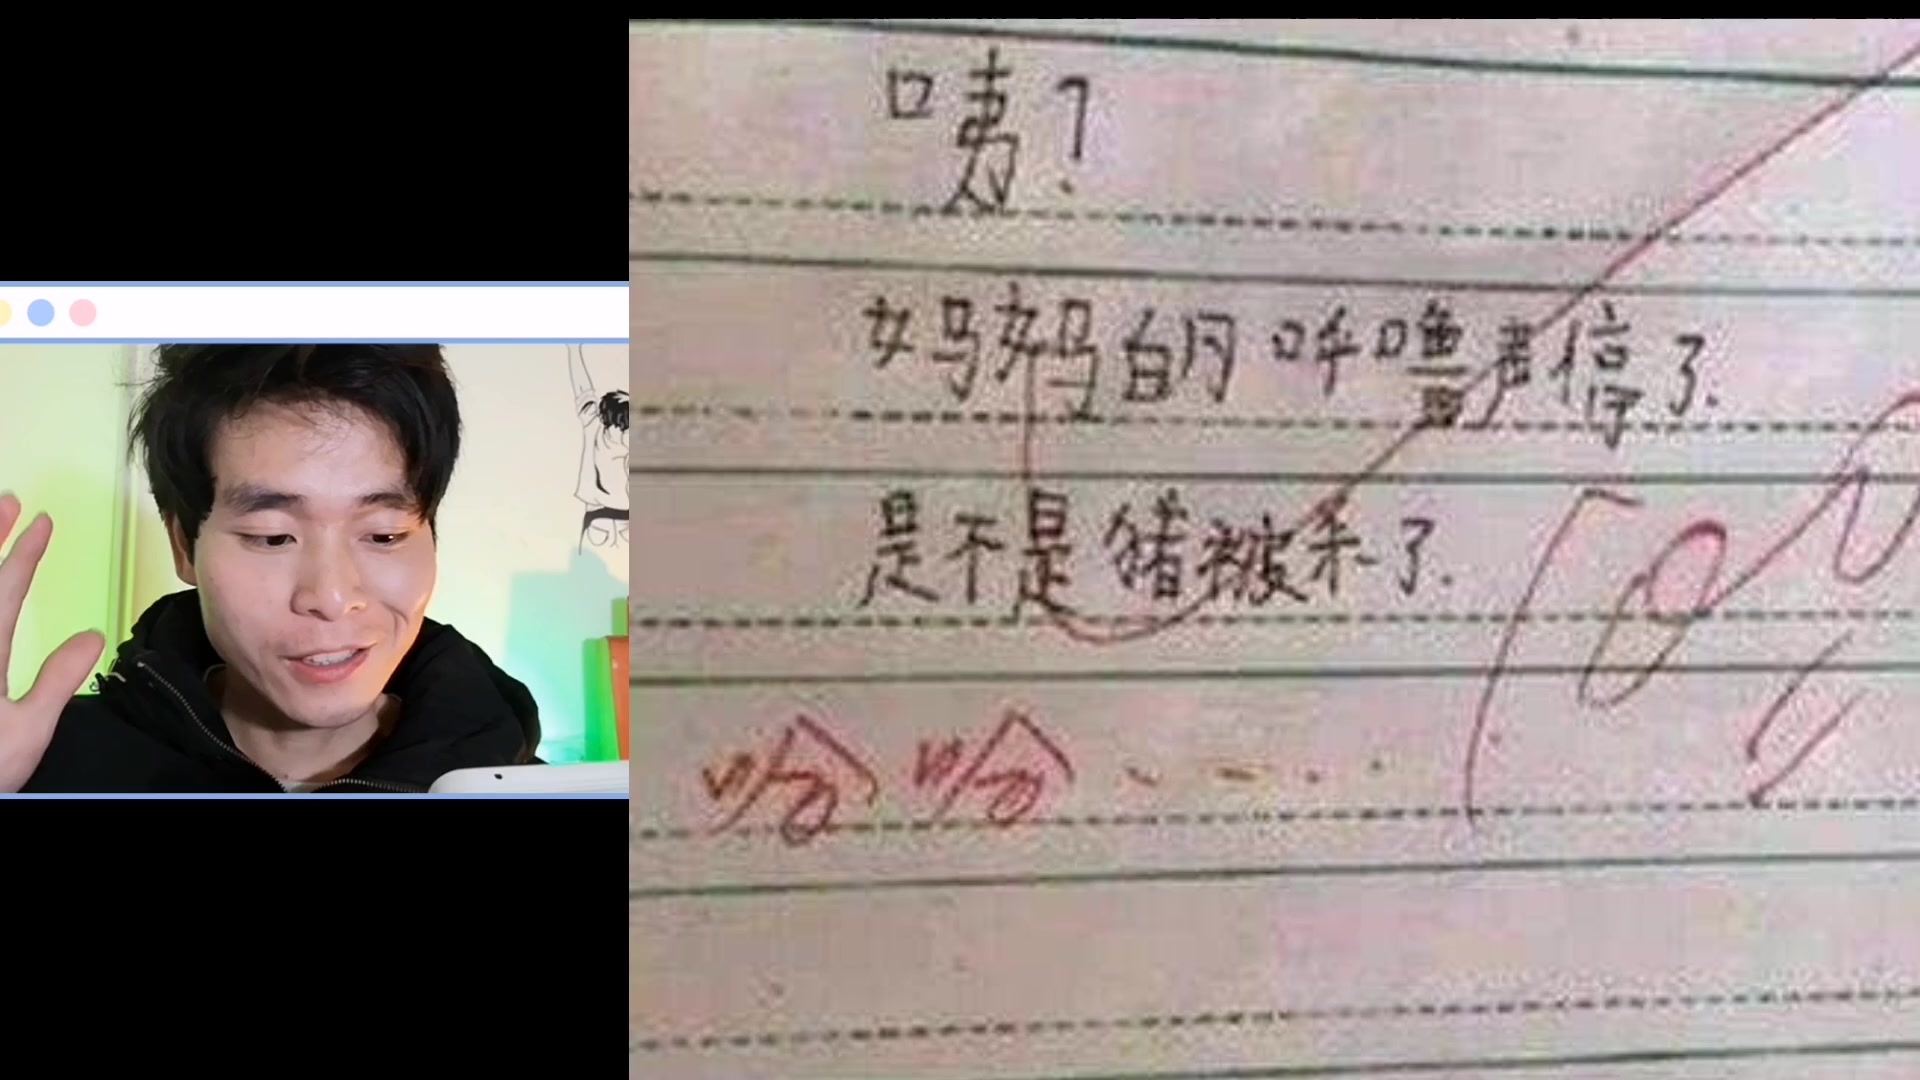 咦？
妈妈的呼噜声停了.
是不是猪被杀了.
100
哈哈……